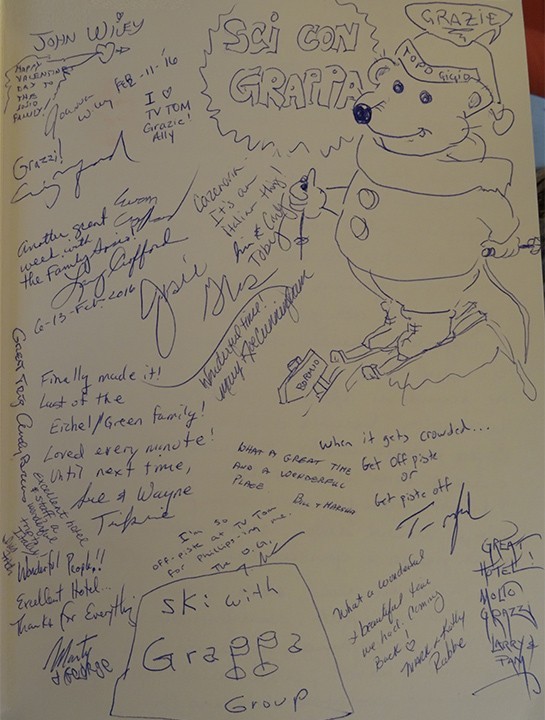 JOHN WILEY
HAPPY
VALENTINE
DAY TO
THE
FAMILY!
Joanna
Wiley
FEB. 11. '16
I ♡
TV TOM
Grazie!
Ally
SCI CON
GRAPPA
GRAZIE
TOPO GIGIO
Grazzi!
Another great
week with
the Family
6-13-Feb. 2016
It's an
Italian thing!
Toby
Josie
Wonderful time!
Mary Rae Cunningham
BORMIO
Finally made it!
Last of the
Eichel/Green family!
Loved every minute!
Until next time,
Sue & Wayne
GREAT TRIP
excellent hotel
& staff
WHAT A GREAT TIME
AND A WONDERFUL
PLACE
BILL & MARSHA
When it gets crowded...
Get Off piste
or
Get piste off
I'm so
off-pisk at TV Tom
for Phillips-ing me.
The O.G.
Wonderful People!!
Excellent Hotel...
Thanks for Everything.
Marty
& GEORGE
Ski with
Grappa
Group
What a wonderful
& beautiful time
we had. Coming
Back! ♡
MARK & Kathy
GREAT
HOTEL!
MOLTO
GRAZZY
LARRY &
PAM